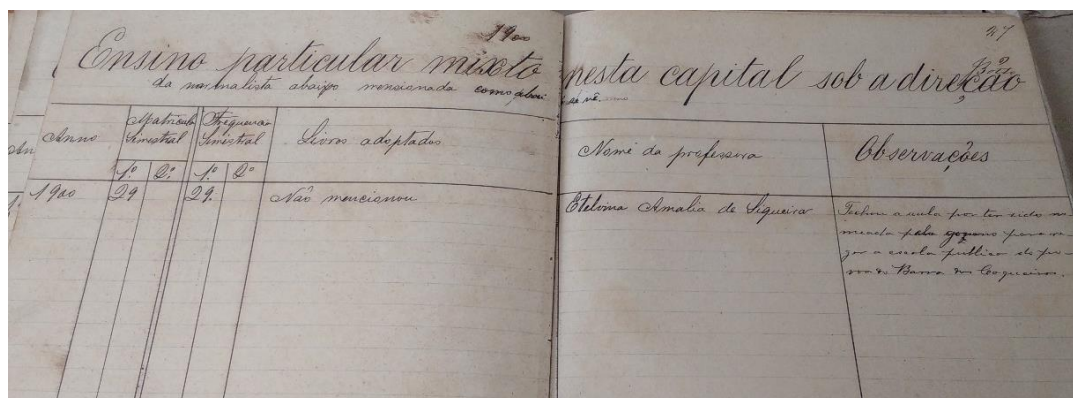 1900
27
Ensino particular mixto nesta capital sob a direção
da normalista abaixo mensionada como abaixo se vê.
Anno
Matricula
Simestral
Frequencia
Simestral
Livros adoptados
Nome da professora
Observações
1º 2º 1º 2º
1900 29 29 Não mencionou Etelvina Amalia de Siqueira
Fechou a aula por ter sido no-
meada pelo governo para re-
ger a escola publica do po-
voado Barra dos Coqueiros.